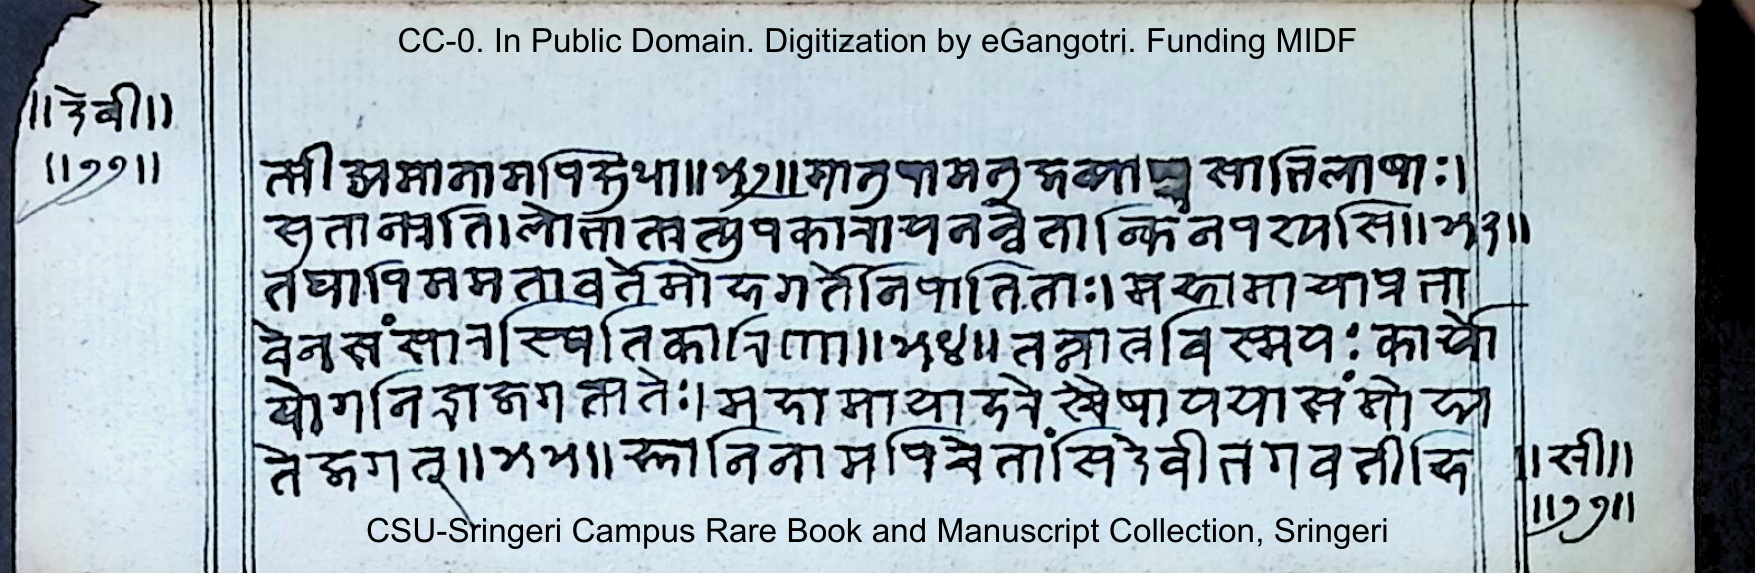 CC-0. In Public Domain. Digitization by eGangotri. Funding MIDF
॥देवी॥
॥११॥
त्मीज्ञमानामपिद्वथा॥५२॥मानुषामनुजव्याघ्रसाभिलाषाः।
सुतान्प्रति।लोभात्प्रत्युपकारायनन्वेतान्किंनपश्यसि॥५३॥
तथापिममतावर्तेमोहगर्तेनिपातिताः।महामायाप्रभा
वेनसंसारस्थितिकारिणा॥५४॥तन्नात्रविस्मयःकार्यो
योगनिद्राजगत्पतेः।महामायाहरेश्चैषाययासंमोह्य
तेजगत्॥५५॥ज्ञानिनामपिचेतांसिदेवीभगवतीहि
॥सी॥
॥११॥
CSU-Sringeri Campus Rare Book and Manuscript Collection, Sringeri